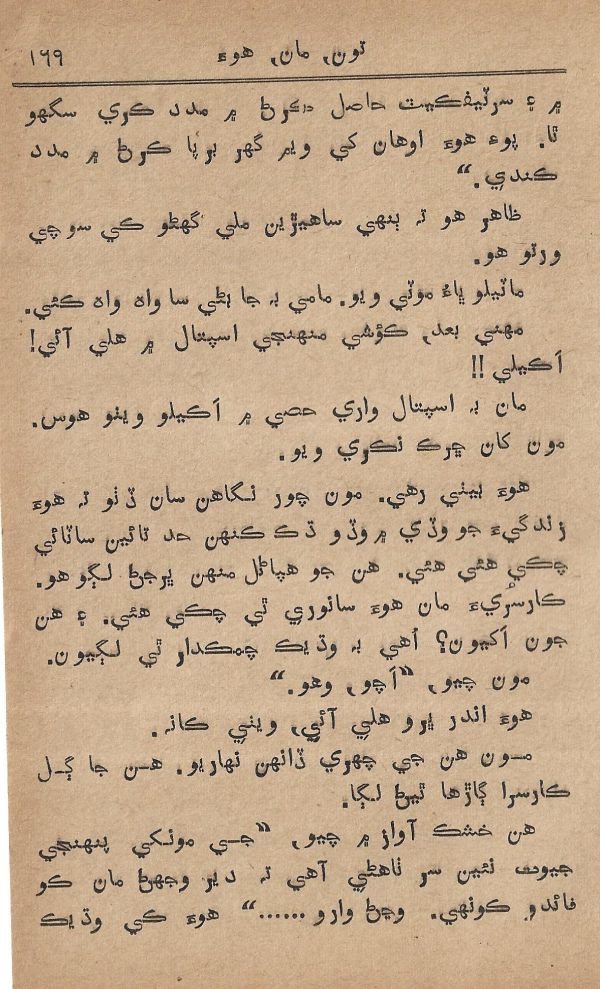 تون، مان، هوءَ ١٦٩
۾ ۽ سرٽيفڪيٽ حاصل ڪرڻ ۾ مدد ڪري سگهو
ٿا. پوءِ هوءَ اوهان کي ويم گهر برپا ڪرڻ ۾ مدد
ڪندي.“
ظاهر هو ته ٻنهي ساهيڙين ملي گهڻو ڪي سوچي
ورتو هو.
ماٽيلو ڀاءُ موٽي ويو. مامي به جا ٻڻي سا واه واه ڪئي.
مهني بعد، ڪؤشي منهنجي اسپتال ۾ هلي آئي!
اَڪيلي !!
مان به اسپتال واري حصي ۾ اَڪيلو ويٺو هوس.
مون کان ڇرڪ نڪري ويو.
هوءَ بيٺي رهي. مون چور نگاهن سان ڏٺو ته هوءَ
زندگيءَ جو وڏي ۾ وڏو ڌڪ ڪنهن حد تائين ساٽائي
چڪي هئي هئي. هن جو هيپاٽل منهن ڀرجڻ لڳو هو.
ڪارسڙيءَ مان هوءَ سانوري ٿي چڪي هئي. ۽ هن
جون اَکيون؟ اُهي به وڌيڪ چمڪدار ٿي لڳيون.
مون چيو، ”اَچو، وهو.“
هوءَ اندر ڀرو هلي آئي، ويٺي ڪانه.
مون هن جي چهري ڏانهن نهاريو. هن جا ڳل
ڪارسرا ڳاڙها ٿيڻ لڳا.
هن خشڪ آواز ۾ چيو، ”جي مونکي پنهنجي
جيوت نئين سر ٺاهڻي آهي ته دير وجهڻ مان ڪو
فائدو ڪونهي. وڃڻ وارو ......“ هوءَ ڪي وڌيڪ